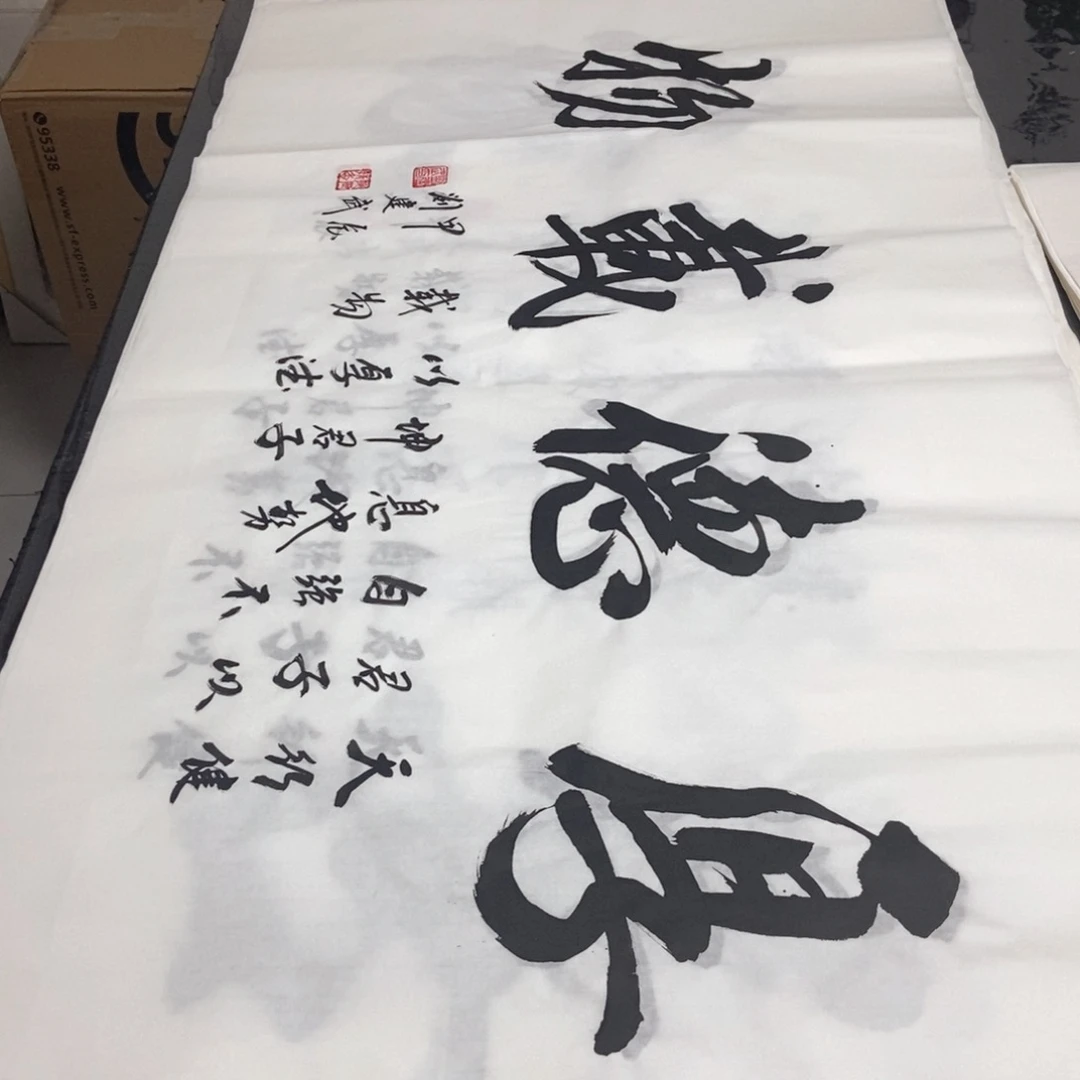 厚德載物
天行健
君子以
自强不
息地勢
坤君子
以厚德
載物
甲辰
劉建武
95338 www.sf-express.com